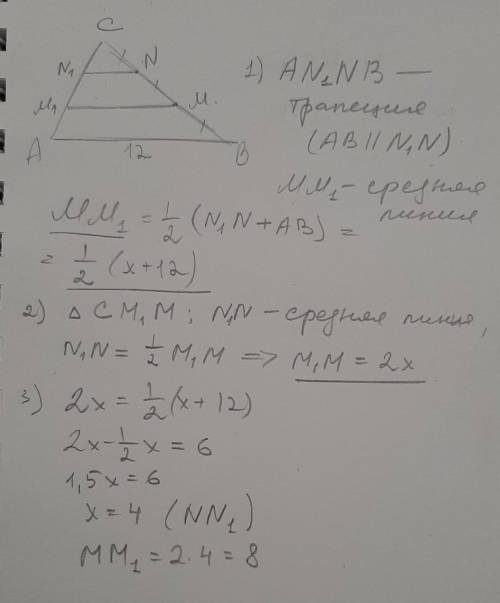 C
N₁ N
M₁ M.
A 12 B
1) AN₁NB —
трапеция
(AB || N₁N)
MM₁ - средняя
линия
MM₁ = 1/2 (N₁N + AB) =
= 1/2 (x+12)
2) △ CM₁M ; N₁N - средняя линия,
N₁N = 1/2 M₁M => M₁M = 2x
3) 2x = 1/2 (x + 12)
2x - 1/2 x = 6
1,5x = 6
x = 4 (NN₁)
MM₁ = 2 · 4 = 8